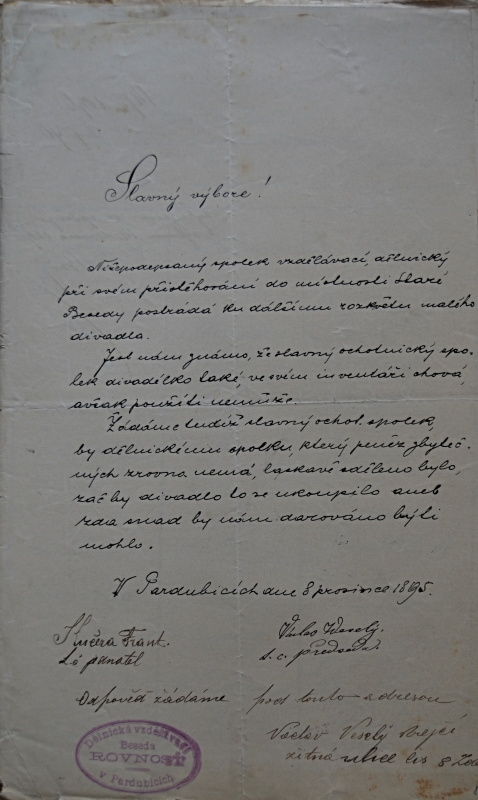 Slavný výbore!
Nížepodepsaný spolek vzdělávací, dělnický
při svém přistěhování do místnosti Staré
Besedy postrádá ku dalšímu rozkvětu malého
divadla.
Jest nám známo, že slavný ochotnický spo-
lek divadélko také ve svém inventáři chová,
avšak použíti nemůže.
Žádáme tudíž slavný ochot. spolek,
by dělnickému spolku, který peněz zbyteč-
ných zrovna nemá, laskavě sděleno bylo,
zač by divadlo to se ukoupilo aneb
zda snad by nám darováno býti
mohlo.
V Pardubicích dne 8 prosince 1895.
Kučera Frant. Václav Veselý
t. č. předseda
Odpověď žádáme pod touto adresou
Václav Veselý
Žitná ulice čís 8
Dělnická vzdělávací
Beseda
ROVNOST
v Pardubicích